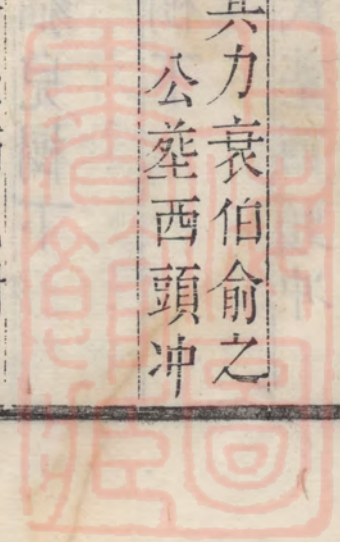 其力衰伯俞之
公塟西頭冲